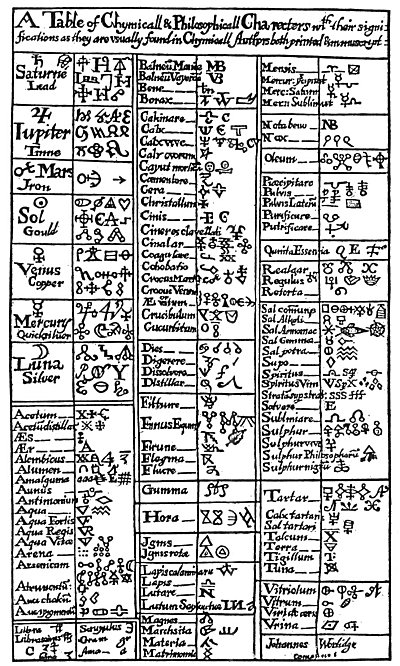 A Table of Chymicall & Philosophicall Charecters wth their signi-
fications as they are usually found in Chymicall Authors both printed & manuscript
Saturne
Lead
Iupiter
Tinne
Mars
Iron
Sol
Gould
Venus
Copper
Mercury
Quicksilver
Luna
Silver
Acetum
Acetu distillat
Æs
Ær
Alembicus
Alumen
Amalgama
Annus
Antimonium
Aqua
Aqua Fortis
Aqua Regis
Aqua Vitæ
Arena
Arsenicum
Auripigmentū
Libra
Scrupulus
Gran
Balneū Mariæ MB
Balneū Vaporis VB
Bene
Borax
Calcinare
Calx
Calx vive
Calx ovorum
Caput mortuū
Cæmentare
Cera
Christallum
Cinis
Cineres clavellati
Cinabar
Coagulare
Cohobatio
Crocus Martis
Crocus Veneris
Æs ustum
Crucibulum
Cucurbitum
Dies
Digerere
Dissolvere
Distillar
Filtrare
Fimus Equin
Flegma
Fluere
Gumma
Hora
Ignis
Ignis rota
Lapis calaminare
Lapis
Lutare
Lutum Sapientiæ
Magnes
Marchasita
Materia
Matrimonium
Mensis
Mercur: precipit
Merc: Saturn
Merc: Sublimat
Notabene NB
Nox
Oleum
Præcipitare
Pulvis
Pulvis Laterū
Purificare
Putrificare
Quinta Essenia Q E
Realgar
Regulus
Retorta
Sal comune
Sal Alkali
Sal Armoniac
Sal Gemma
Sal petra
Sapo
Spiritus
Spiritus Vini
Stratum sup strat: SSS
Solvere
Sublimare
Sulphur
Sulphur vive
Sulphur Philosophorū
Sulphur nigrū
Tartar
Calx tartari
Sal tartari
Talcum
Terra
Tigillum
Tutia
Vitriolum
Vitrum
Viride æris
Urina
Johannes Worlidge